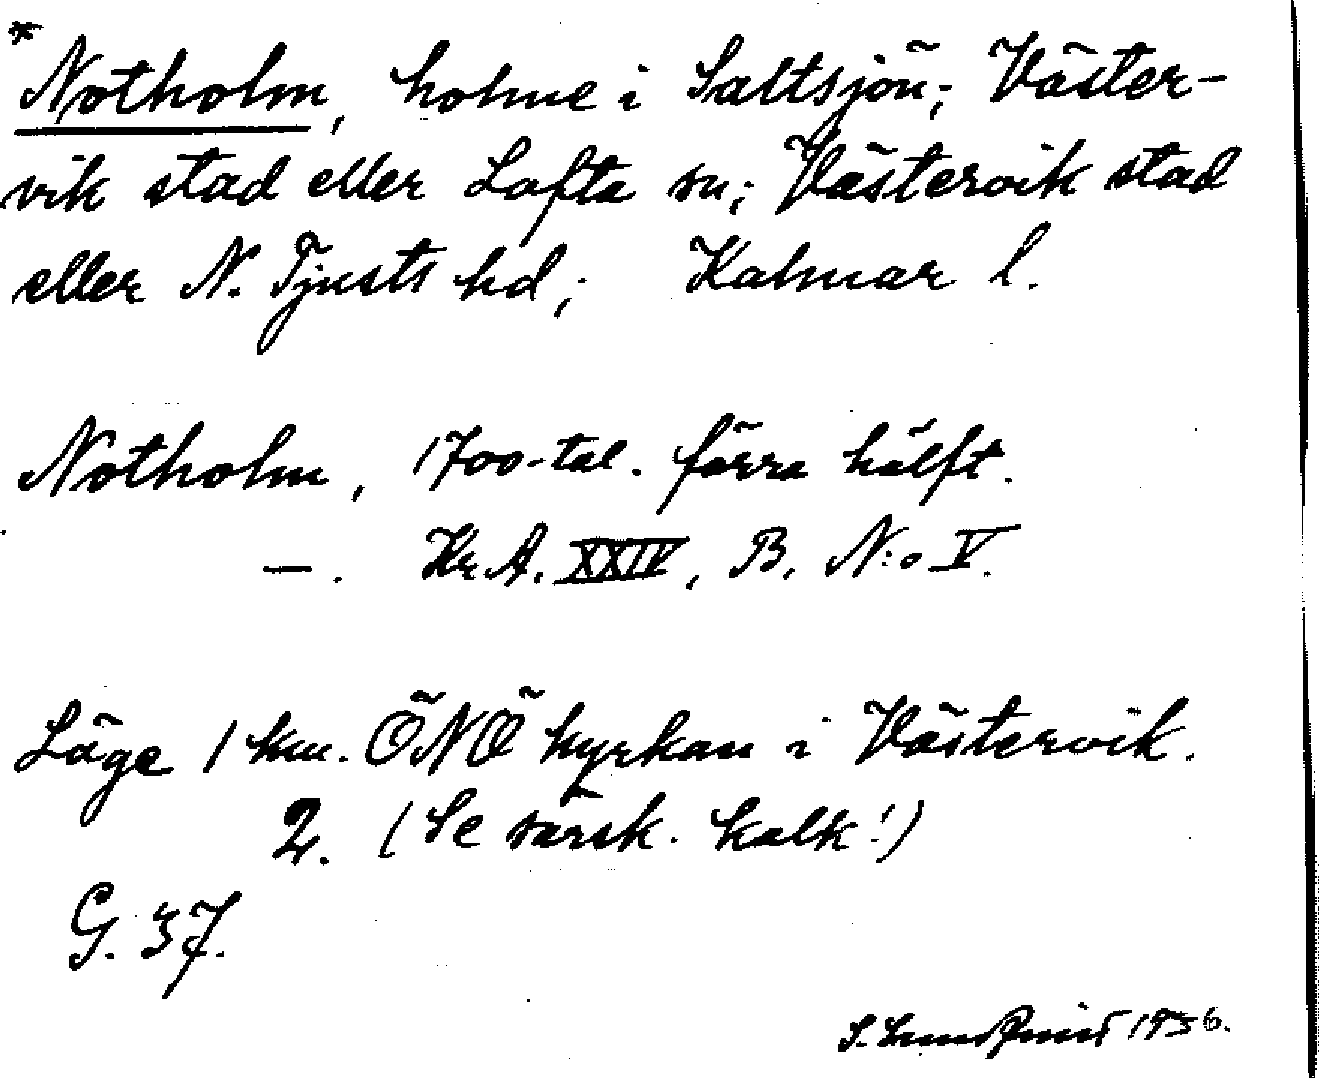 * Notholm, holme i Saltsjön; Väster-
vik stad eller Lofta sn; Västervik stad
eller N. Tjusts hd; Kalmar l.
Notholm, 1700-tal. förra hälft.
—. Kr. A. XXIV, B. N:o V.
Läge 1 km. ÖNÖ kyrkan i Västervik.
2. (Se särsk. kalk!)
G. 37.
S. Lundqvist 1936.